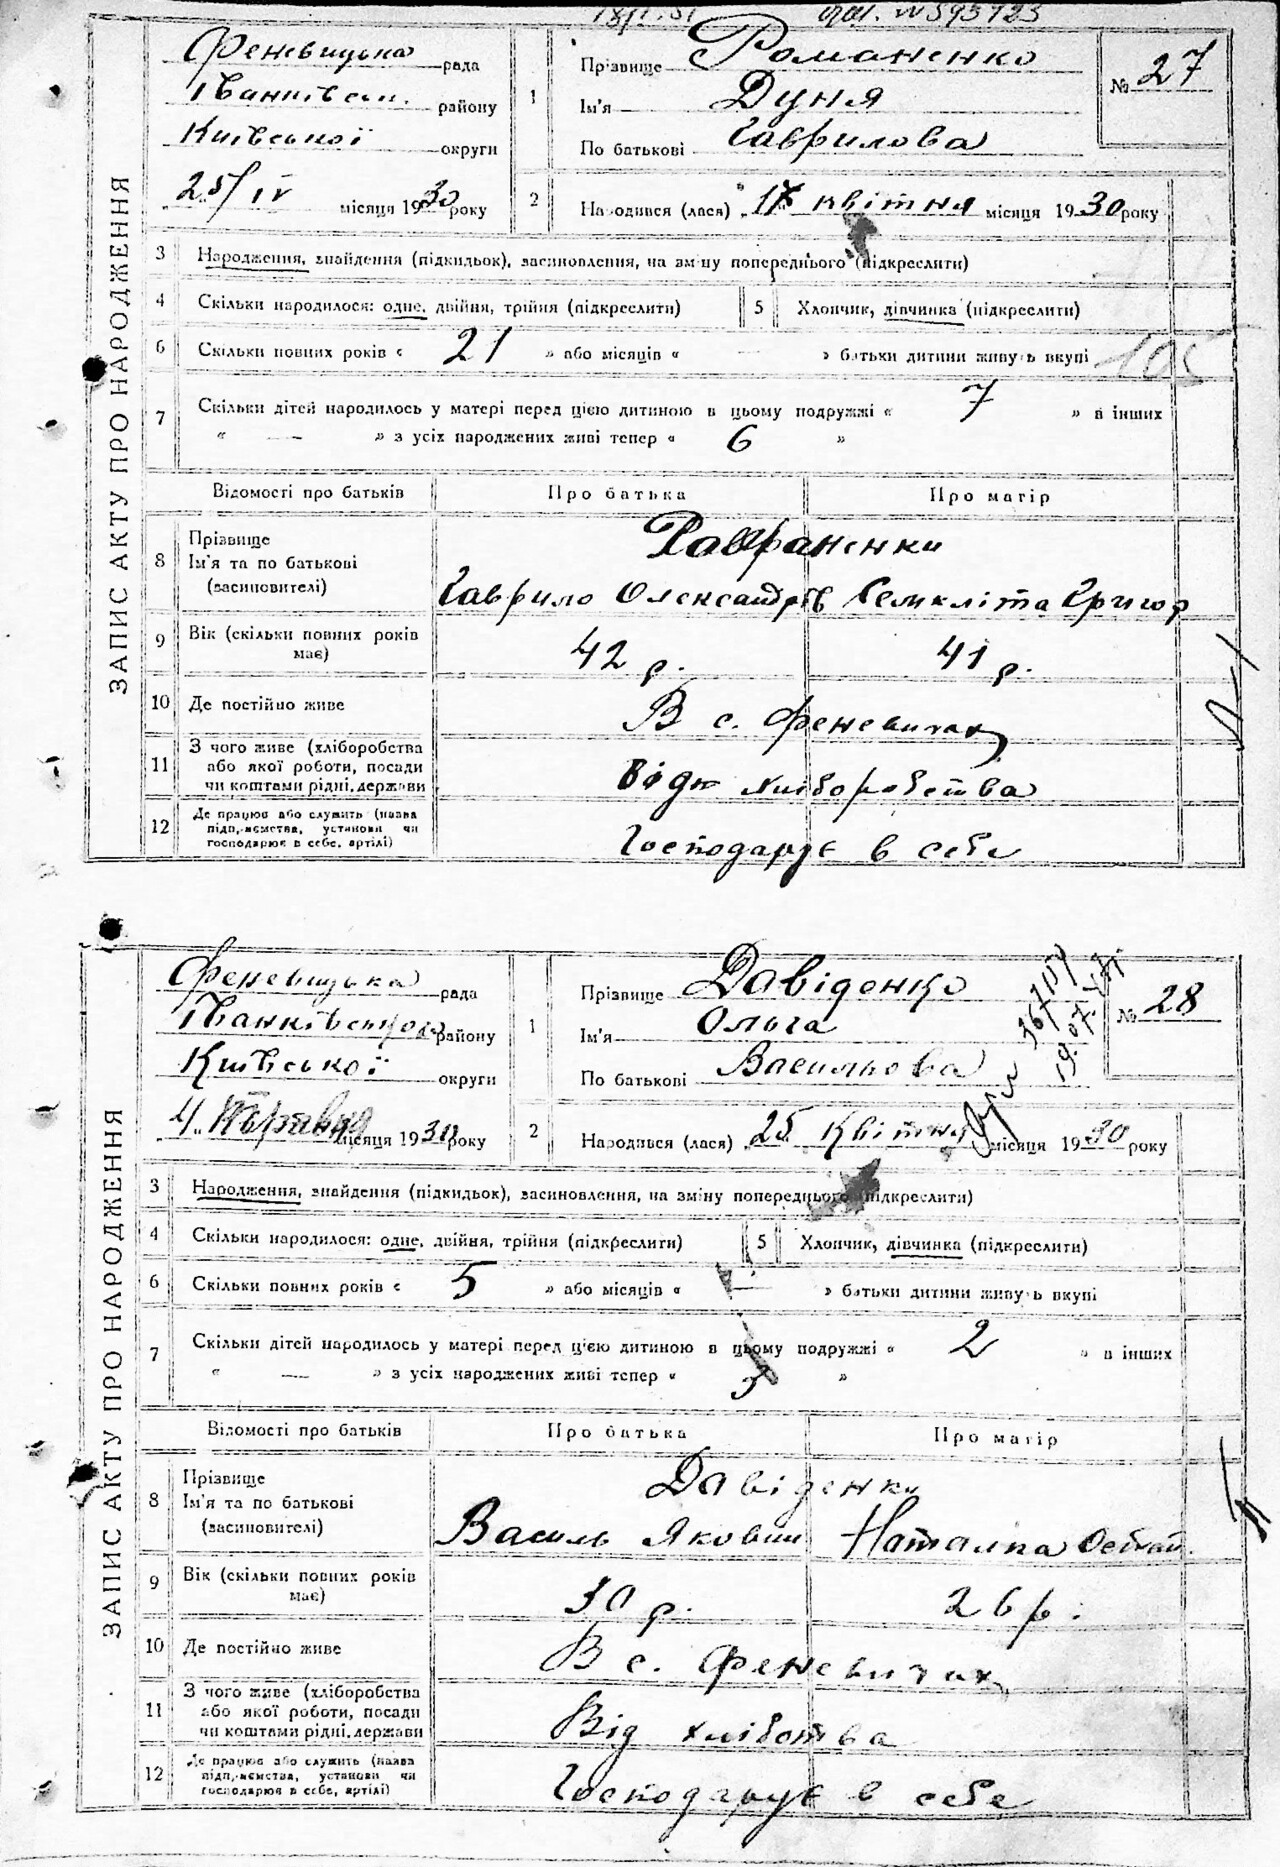 ЗАПИС АКТУ ПРО НАРОДЖЕННЯ
Феневицька рада
Іванківськ. району
Київської округи
25/IV місяця 1930 року
1
Прізвище Романенко
Ім'я Дуня
По батькові Гаврилова
№ 27
2 Народився (лася) „ квітня місяця 1930 року
3 Народження, знайдення (підкидьок), засиновлення, на зміну попереднього (підкреслити)
4 Скільки народилося: одне, двійня, трійня (підкреслити)
5 Хлопчик, дівчинка (підкреслити)
6 Скільки повних років « 21 » або місяців « — » батьки дитини живуть вкупі
105
7 Скільки дітей народилось у матері перед цією дитиною в цьому подружжі « 7 » в інших
« — » з усіх народжених живі тепер « 6 »
Відомості про батьків Про батька Про матір
8 Прізвище
Ім'я та по батькові
(засиновителі)
Гаврило Олександрів Григор
9 Вік (скільки повних років має) 42 р. 41 р.
10 Де постійно живе В с. Феневичах
11 З чого живе (хліборобства або якої роботи, посади чи коштами рідні, держави хліборобства
12 Де працює або служить (назва підприємства, установи чи господарює в себе, артілі) Господарує в себе
ЗАПИС АКТУ ПРО НАРОДЖЕННЯ
Феневицька рада
Іванківського району
Київської округи
4 Травня місяця 1930 року
1
Прізвище Давіденко
Ім'я Ольга
По батькові Васильова
№ 28
2 Народився (лася) „25 Квітня місяця 1930 року
3 Народження, знайдення (підкидьок), засиновлення, на зміну попереднього (підкреслити)
4 Скільки народилося: одне, двійня, трійня (підкреслити)
5 Хлопчик, дівчинка (підкреслити)
6 Скільки повних років « 5 » або місяців « — » батьки дитини живуть вкупі
7 Скільки дітей народилось у матері перед цією дитиною в цьому подружжі « 2 » в інших
« — » з усіх народжених живі тепер « »
Відомості про батьків Про батька Про матір
8 Прізвище
Ім'я та по батькові
(засиновителі)
Давіденки
Василь Яковів
9 Вік (скільки повних років має) 30 р. 26 р.
10 Де постійно живе В с. Феневичах
11 З чого живе (хліборобства або якої роботи, посади чи коштами рідні, держави Від хлібства
12 Де працює або служить (назва підприємства, установи чи господарює в себе, артілі) Господарує в себе